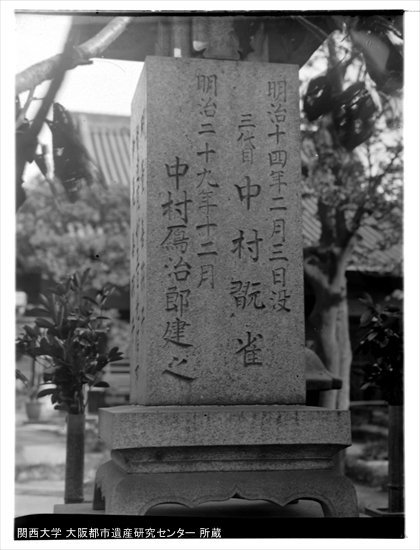 明治十四年二月三日没
三代目 中村翫雀
明治二十九年十二月
中村鴈治郎建之
関西大学 大阪都市遺産研究センター 所蔵